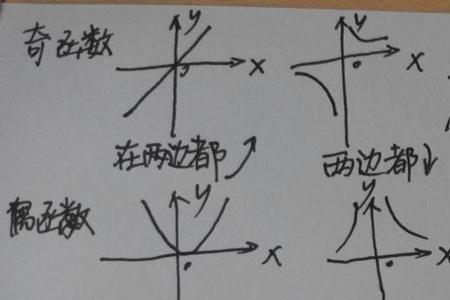 奇函数
y
x
o
y
x
o
在两边都↗
两边都↓
偶函数
y
x
o
y
x
o